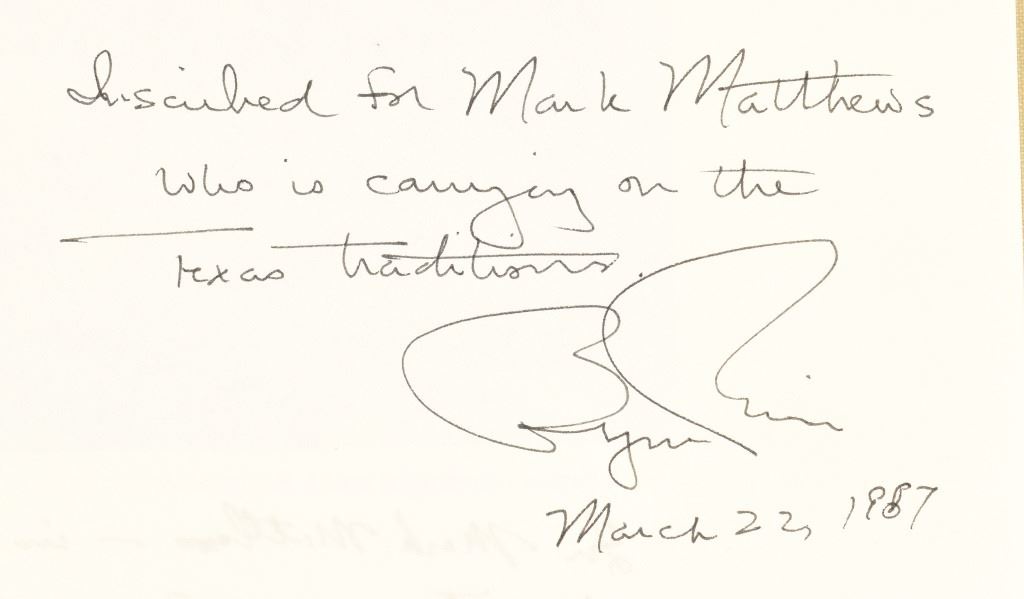 Inscribed for Mark Matthews
who is carrying on the
Texas traditions.
March 22, 1987